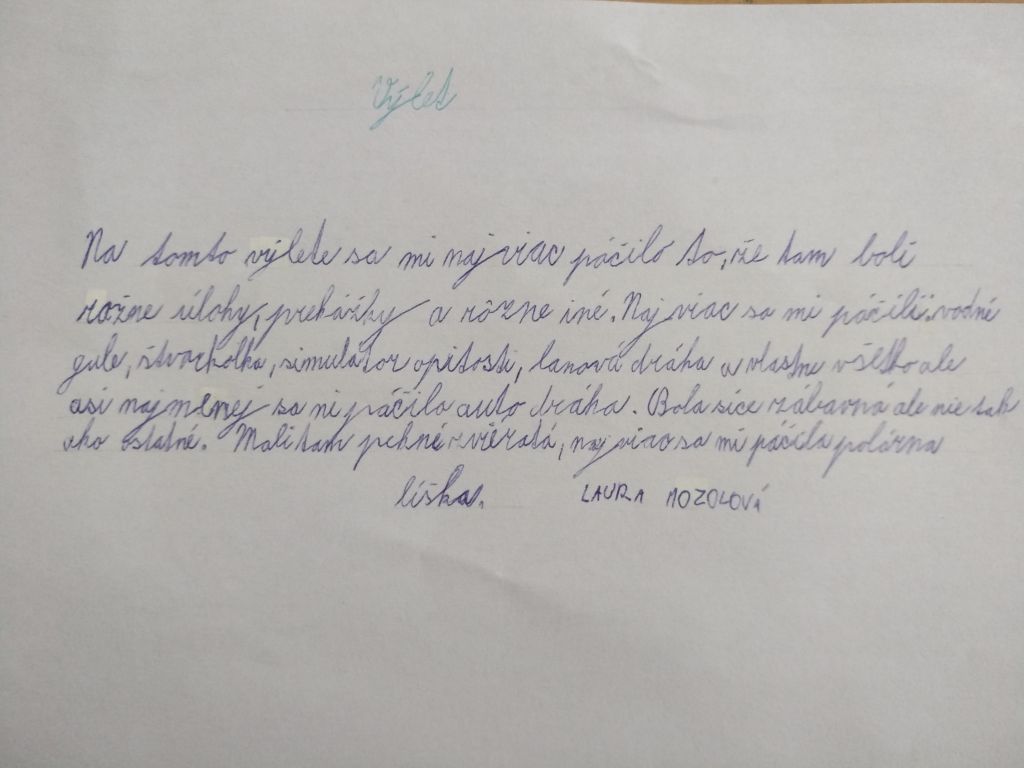 Výlet
Na tomto výlete sa mi naj viac páčiló to, že tam boli
rôzne úlohy, prekážky a rôzne iné. Naj viac sa mi páčili: vodné
gule, štvorkolka, simulátor opitosti, lanová dráha a vlastne všetko ale
asi najmenej sa mi páčilo auto dráha. Bola síce zábavná ale nie tak
ako ostatné. Mali tam pekné zvieratá, naj viac sa mi páčila polárna
líška.
LAURA MOZOLOVÁ